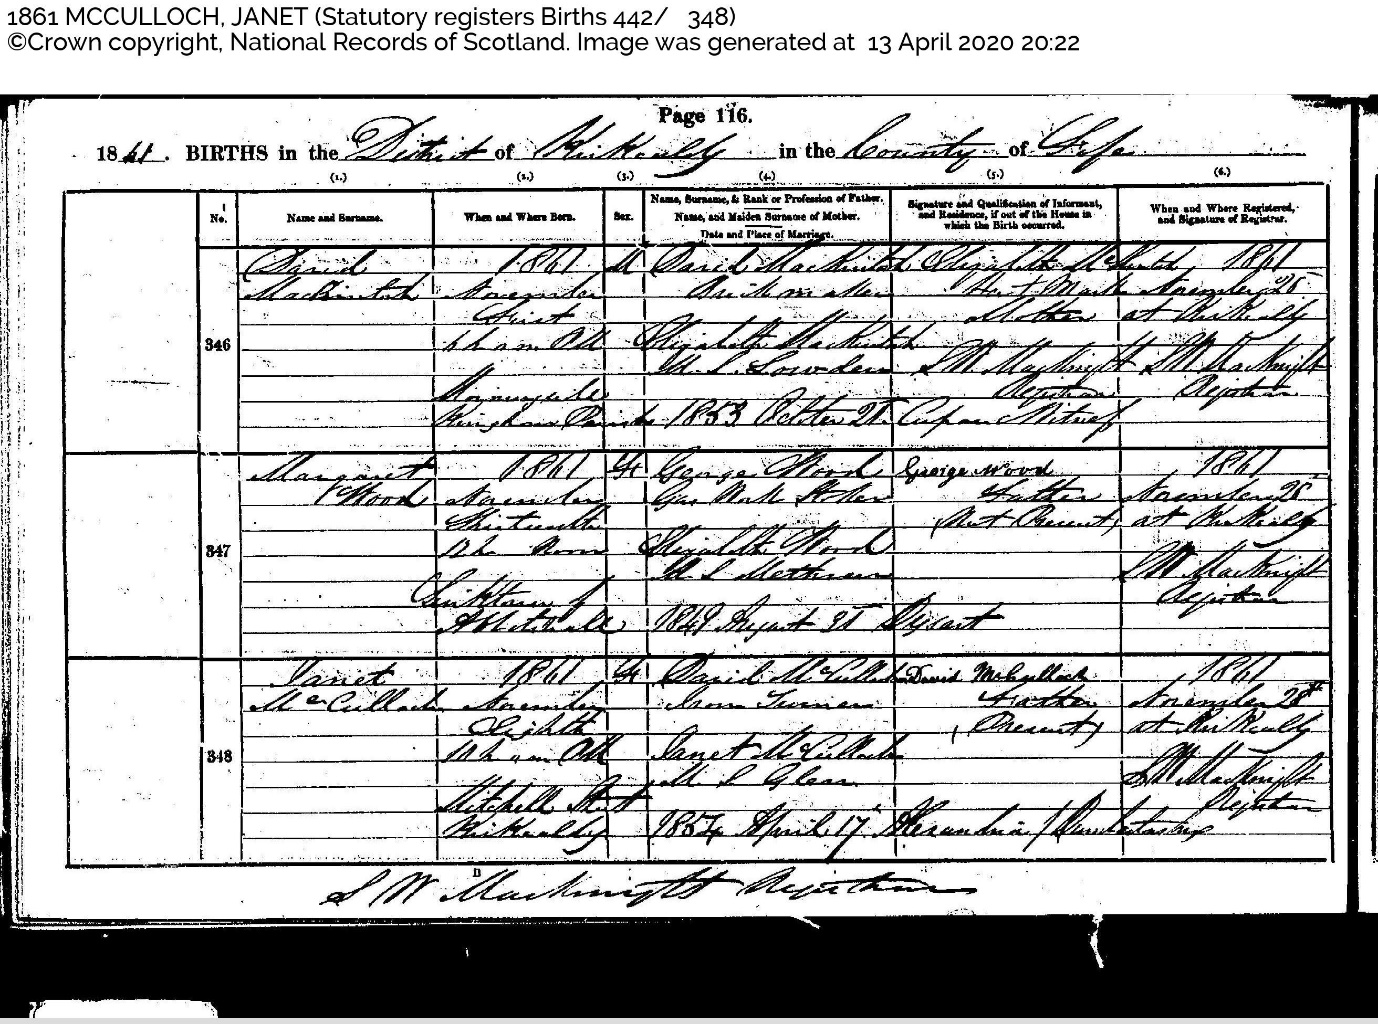 1861 MCCULLOCH, JANET (Statutory registers Births 442/ 348)
©Crown copyright, National Records of Scotland. Image was generated at 13 April 2020 20:22
Page 116.
1861. BIRTHS in the District of Kirkcaldy in the County of Fife
(1.) (2.) (3.) (4.) (5.) (6.)
No. Name and Surname. When and Where Born. Sex. Name, Surname, & Rank or Profession of Father. Name, and Maiden Surname of Mother. Date and Place of Marriage. Signature and Qualification of Informant, and Residence, if out of the House in which the Birth occurred. When and Where Registered, and Signature of Registrar.
346
David
Mackintosh
1861
November
First
6 h a.m. AM
Kinghorn Parish
M
David Mackintosh
Brickmaker
Elizabeth Mackintosh
M.S. Lowden
1853 October 28
Elizabeth McIntosh
Her X Mark
Mother
S W MacKnight
Registrar
Cupar
1861
November 25
at Kirkcaldy
S W MacKnight
Registrar
347
Margaret
Wood
1861
November
Thirteenth
12 h Noon
Linktown of
Abbotshall
F
George Wood
Gas Work Stoker
Elizabeth Wood
M S
1849 August 31
Dysart
George Wood
Father
(Not Present)
1861
November 28
at Kirkcaldy
S W MacKnight
Registrar
348
Janet
McCulloch
1861
November
Eighth
AM
Mitchell Street
Kirkcaldy
F
David McCulloch
Iron Turner
Janet McCulloch
M S Glen
1854 April 17
Alexandria / Dumbartonshire
David McCulloch
Father
(Present)
1861
November 28th
at Kirkcaldy
S W MacKnight
Registrar
S W MacKnight Registrar